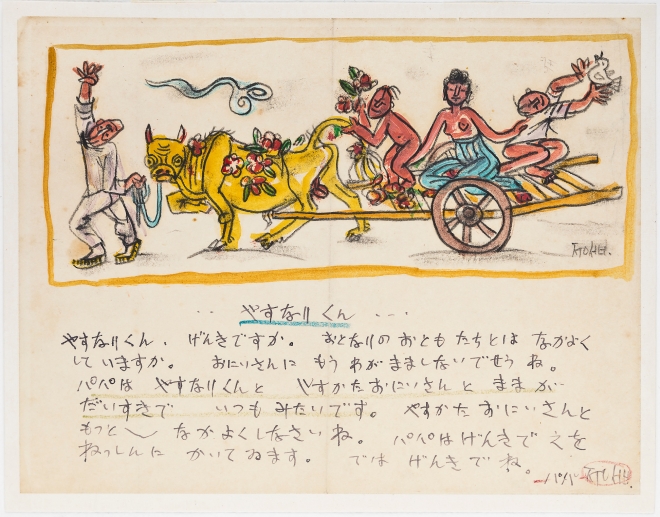 ㅈㅜㅇㅅㅓㅂ.
‥ やすなりくん ‥
やすなりくん、げんきですか。 おとなりのおともたちとは なかよく
していますか。 おにいさんに もうわがまましないでせうね。
パパは やすなりくんと やすかたおにいさんと ままが
だいすきで いつもみたいです。 やすかたおにいさんと
もっと〱 なかよくしなさいね。 パパはげんきで えを
ねっしんに かいてゐます。 では げんきでね。
ーパパー ㅈㅜㅇㅅㅓㅂ.